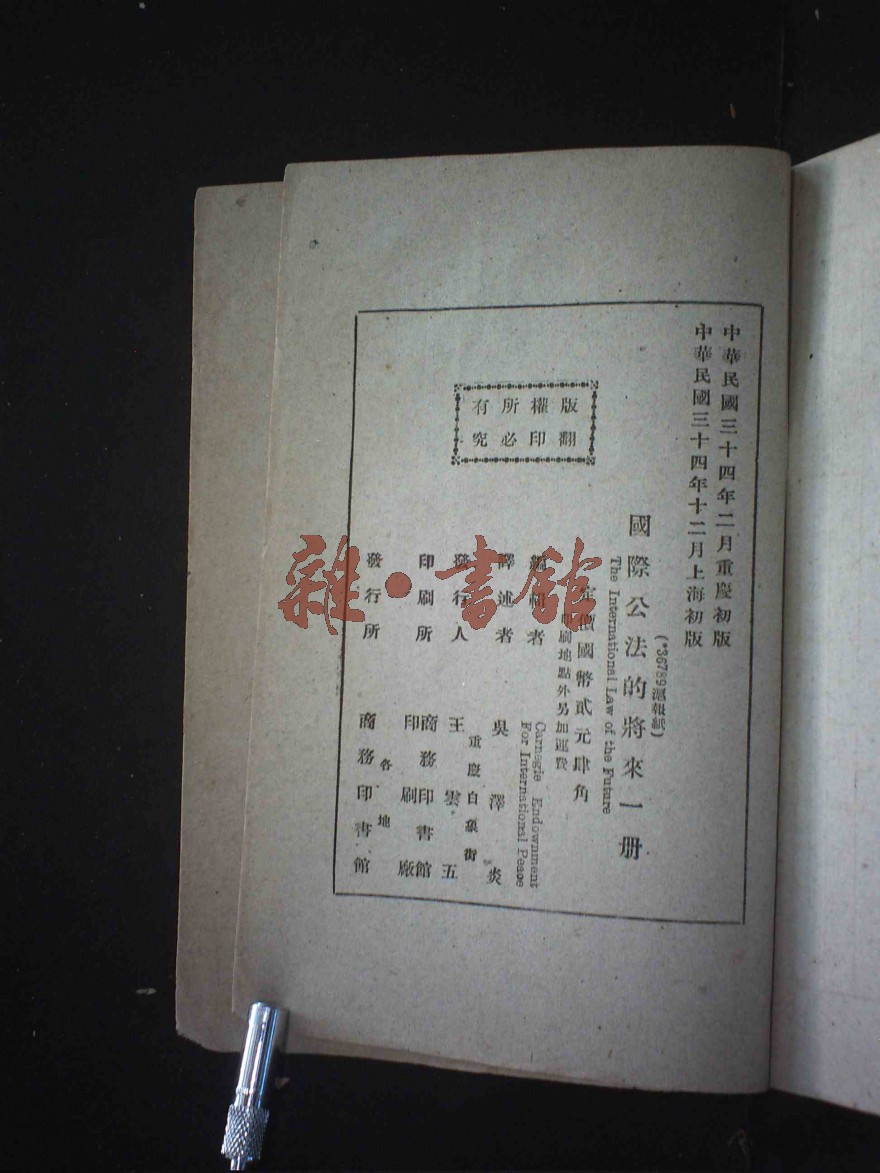 中華民國三十四年二月重慶初版
中華民國三十四年十二月上海初版
(*36789滬報紙)
國際公法的將來一册
The International Law of the Future
定價國幣貳元肆角
印刷地點外另加運費
版權所有
翻印必究
編輯者
Carnegie Endownment
For International Peace
譯述者 吳澤炎
發行人 王雲五
重慶白象街
印刷所 商務印書館
印刷廠
發行所 商務印書館
各地
雜·書館